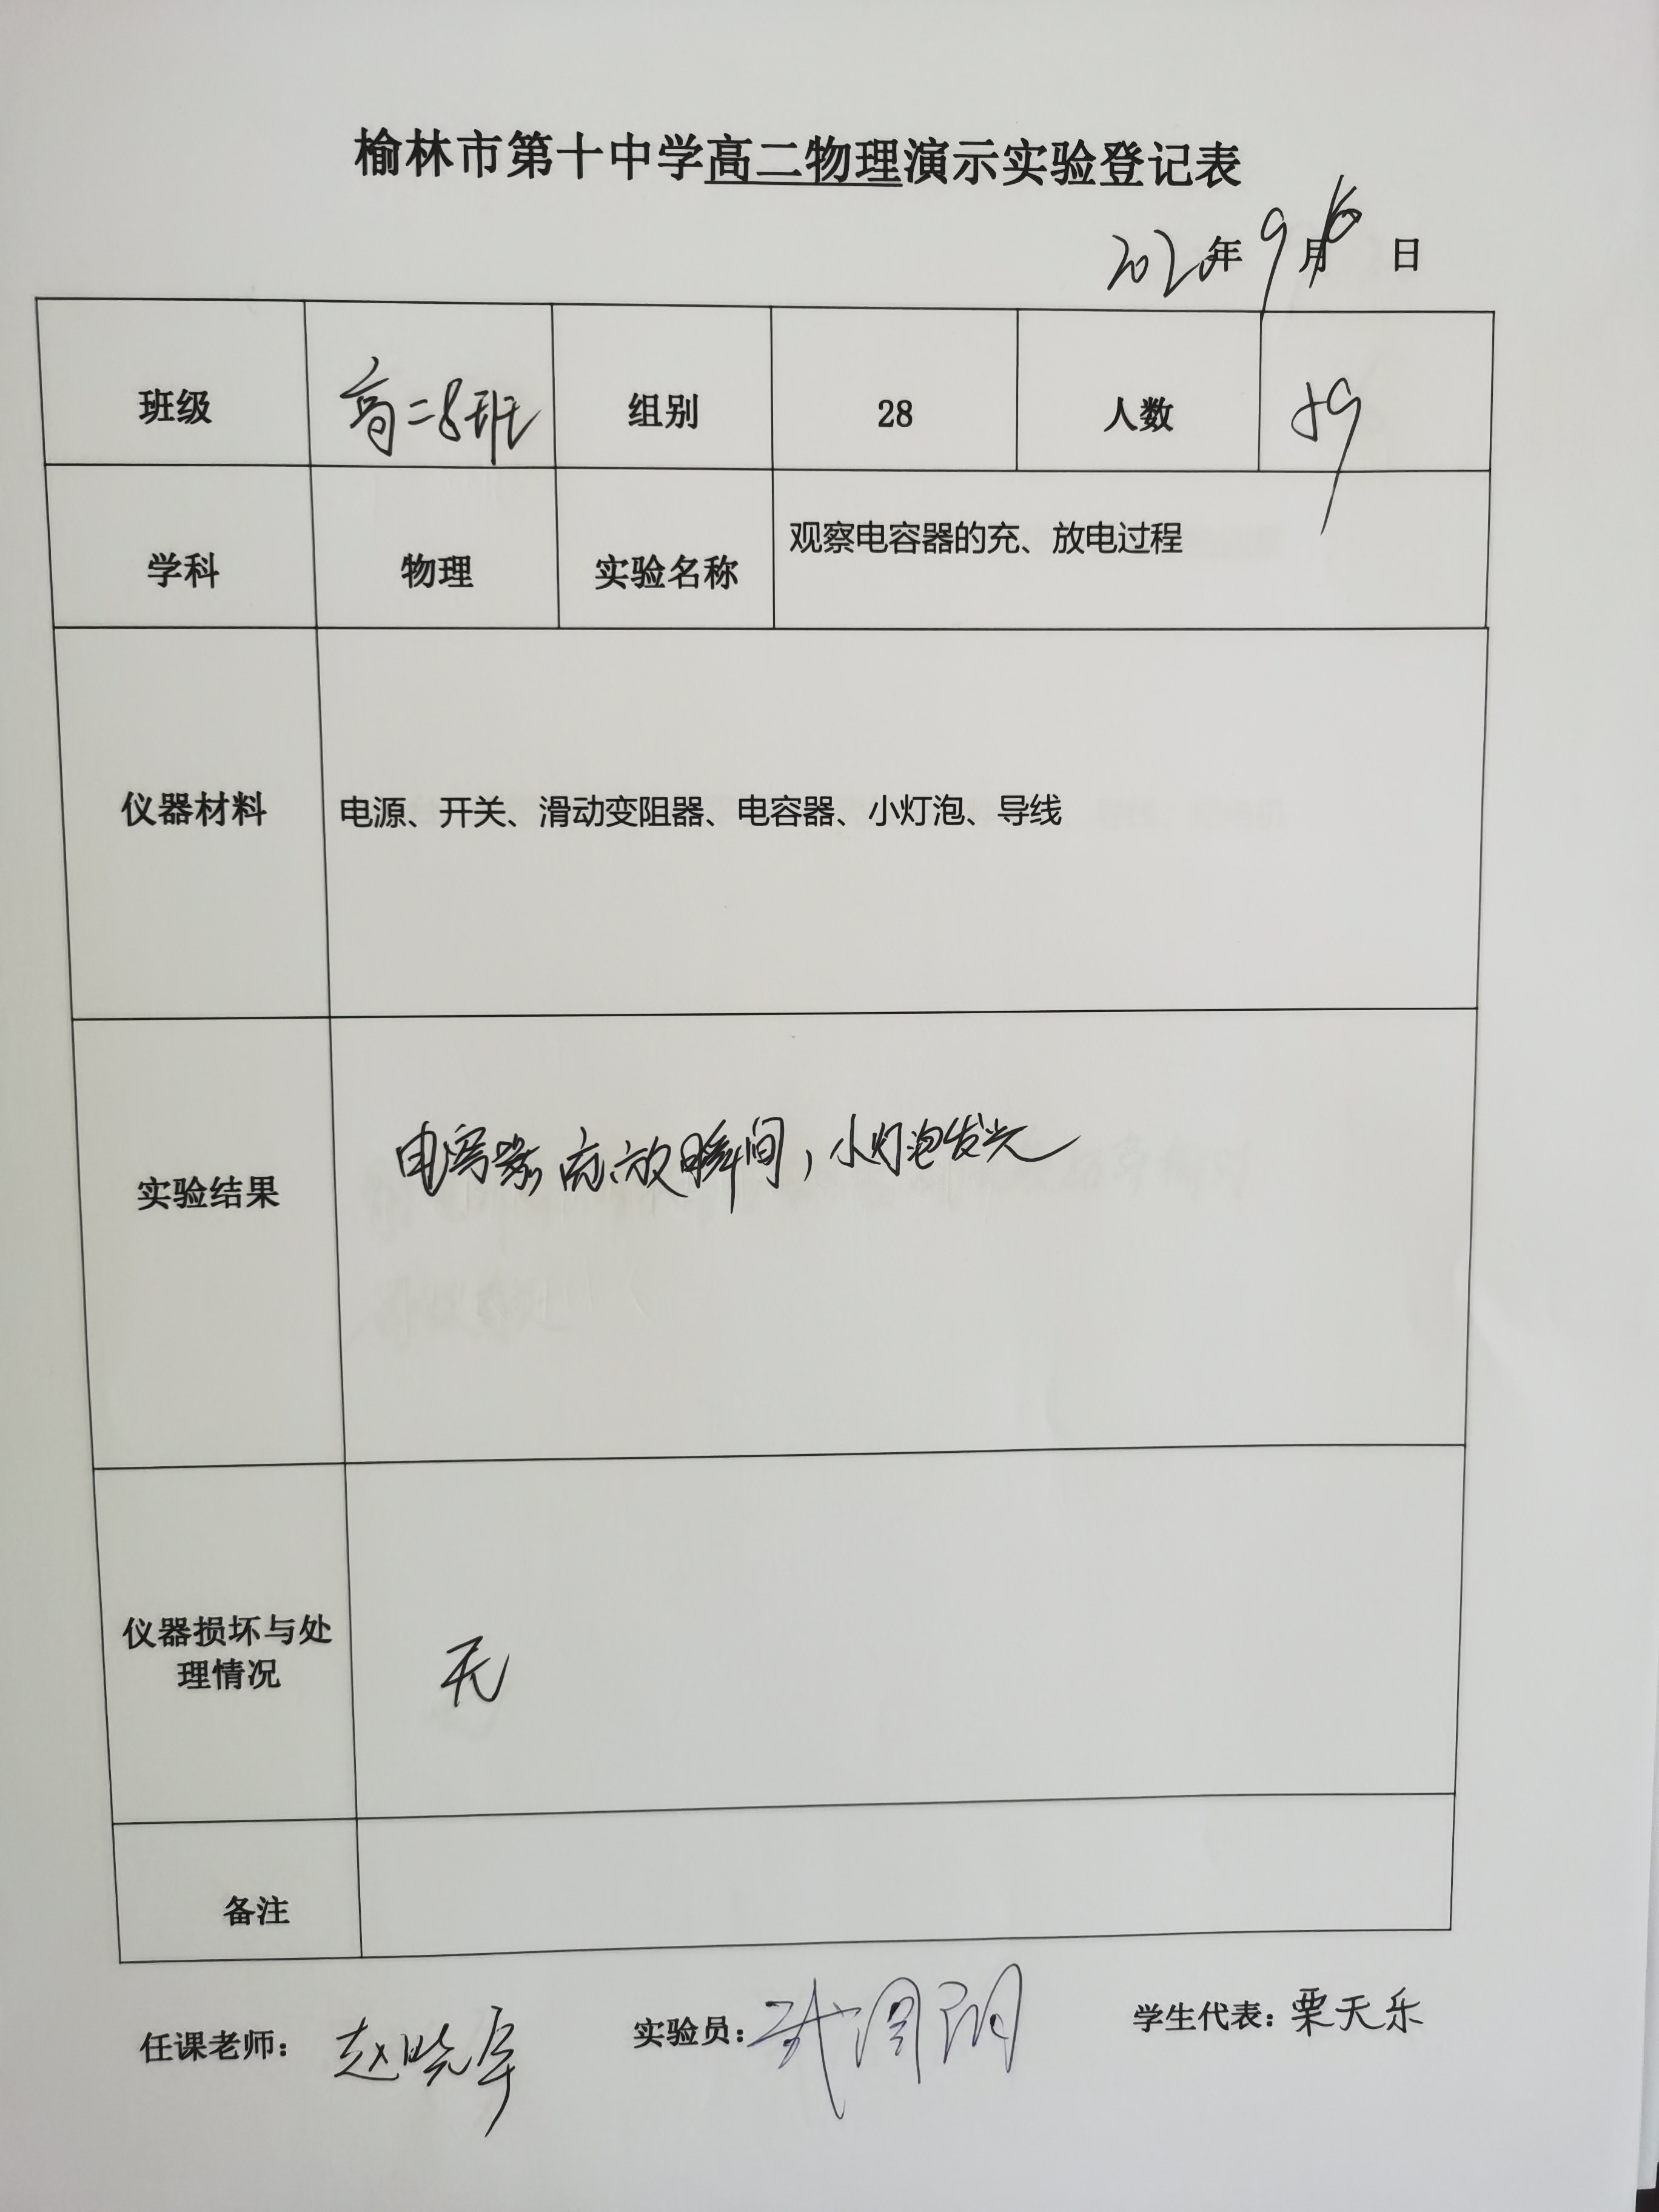 榆林市第十中学高二物理演示实验登记表
2020年9月16日
班级 高二8班 组别 28 人数 59
学科 物理 实验名称 观察电容器的充、放电过程
仪器材料 电源、开关、滑动变阻器、电容器、小灯泡、导线
实验结果 电容器充、放瞬间，小灯泡发光
仪器损坏与处
理情况 无
备注
任课老师： 赵晓军 实验员： 学生代表：栗天乐